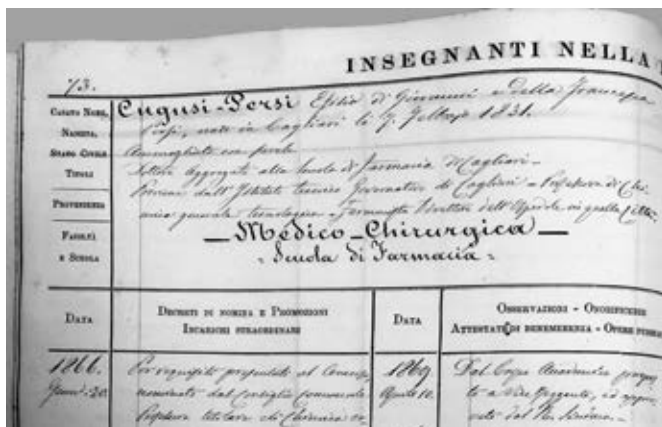 73.
INSEGNANTI NELLA
CASATO NOME,
NASCITA,
STATO CIVILE
TITOLI
PROVENIENZA
FACOLTÀ
E SCUOLA
Cugusi-Persi Efisio di Giovanni e della Francesca
Persi, nato in Cagliari li 7. 1831.
Ammogliato con prole
Dottore Aggregato alla Scuola di Farmacia di Cagliari -
Proviene dall'Istituto tecnico Governativo di Cagliari - Professore di Chi-
mica generale tecnologica - Farmacista Direttore dell'Ospedale in quella Città
— Medico-Chirurgica —
- Scuola di Farmacia -
DATA
DECRETI DI NOMINA E PROMOZIONI
INCARICHI STRAORDINARI
DATA
OSSERVAZIONI - ONORIFICENZE
ATTESTATI DI BENEMERENZA - OPERE
1866.
Genn. 20.
Per requisito presentato al
nominato dal Consiglio
Professore titolare di Chimica
1869
Aprile 10.
Dal Corpo Accademico
to a Vice Reggente, ed
vato dal